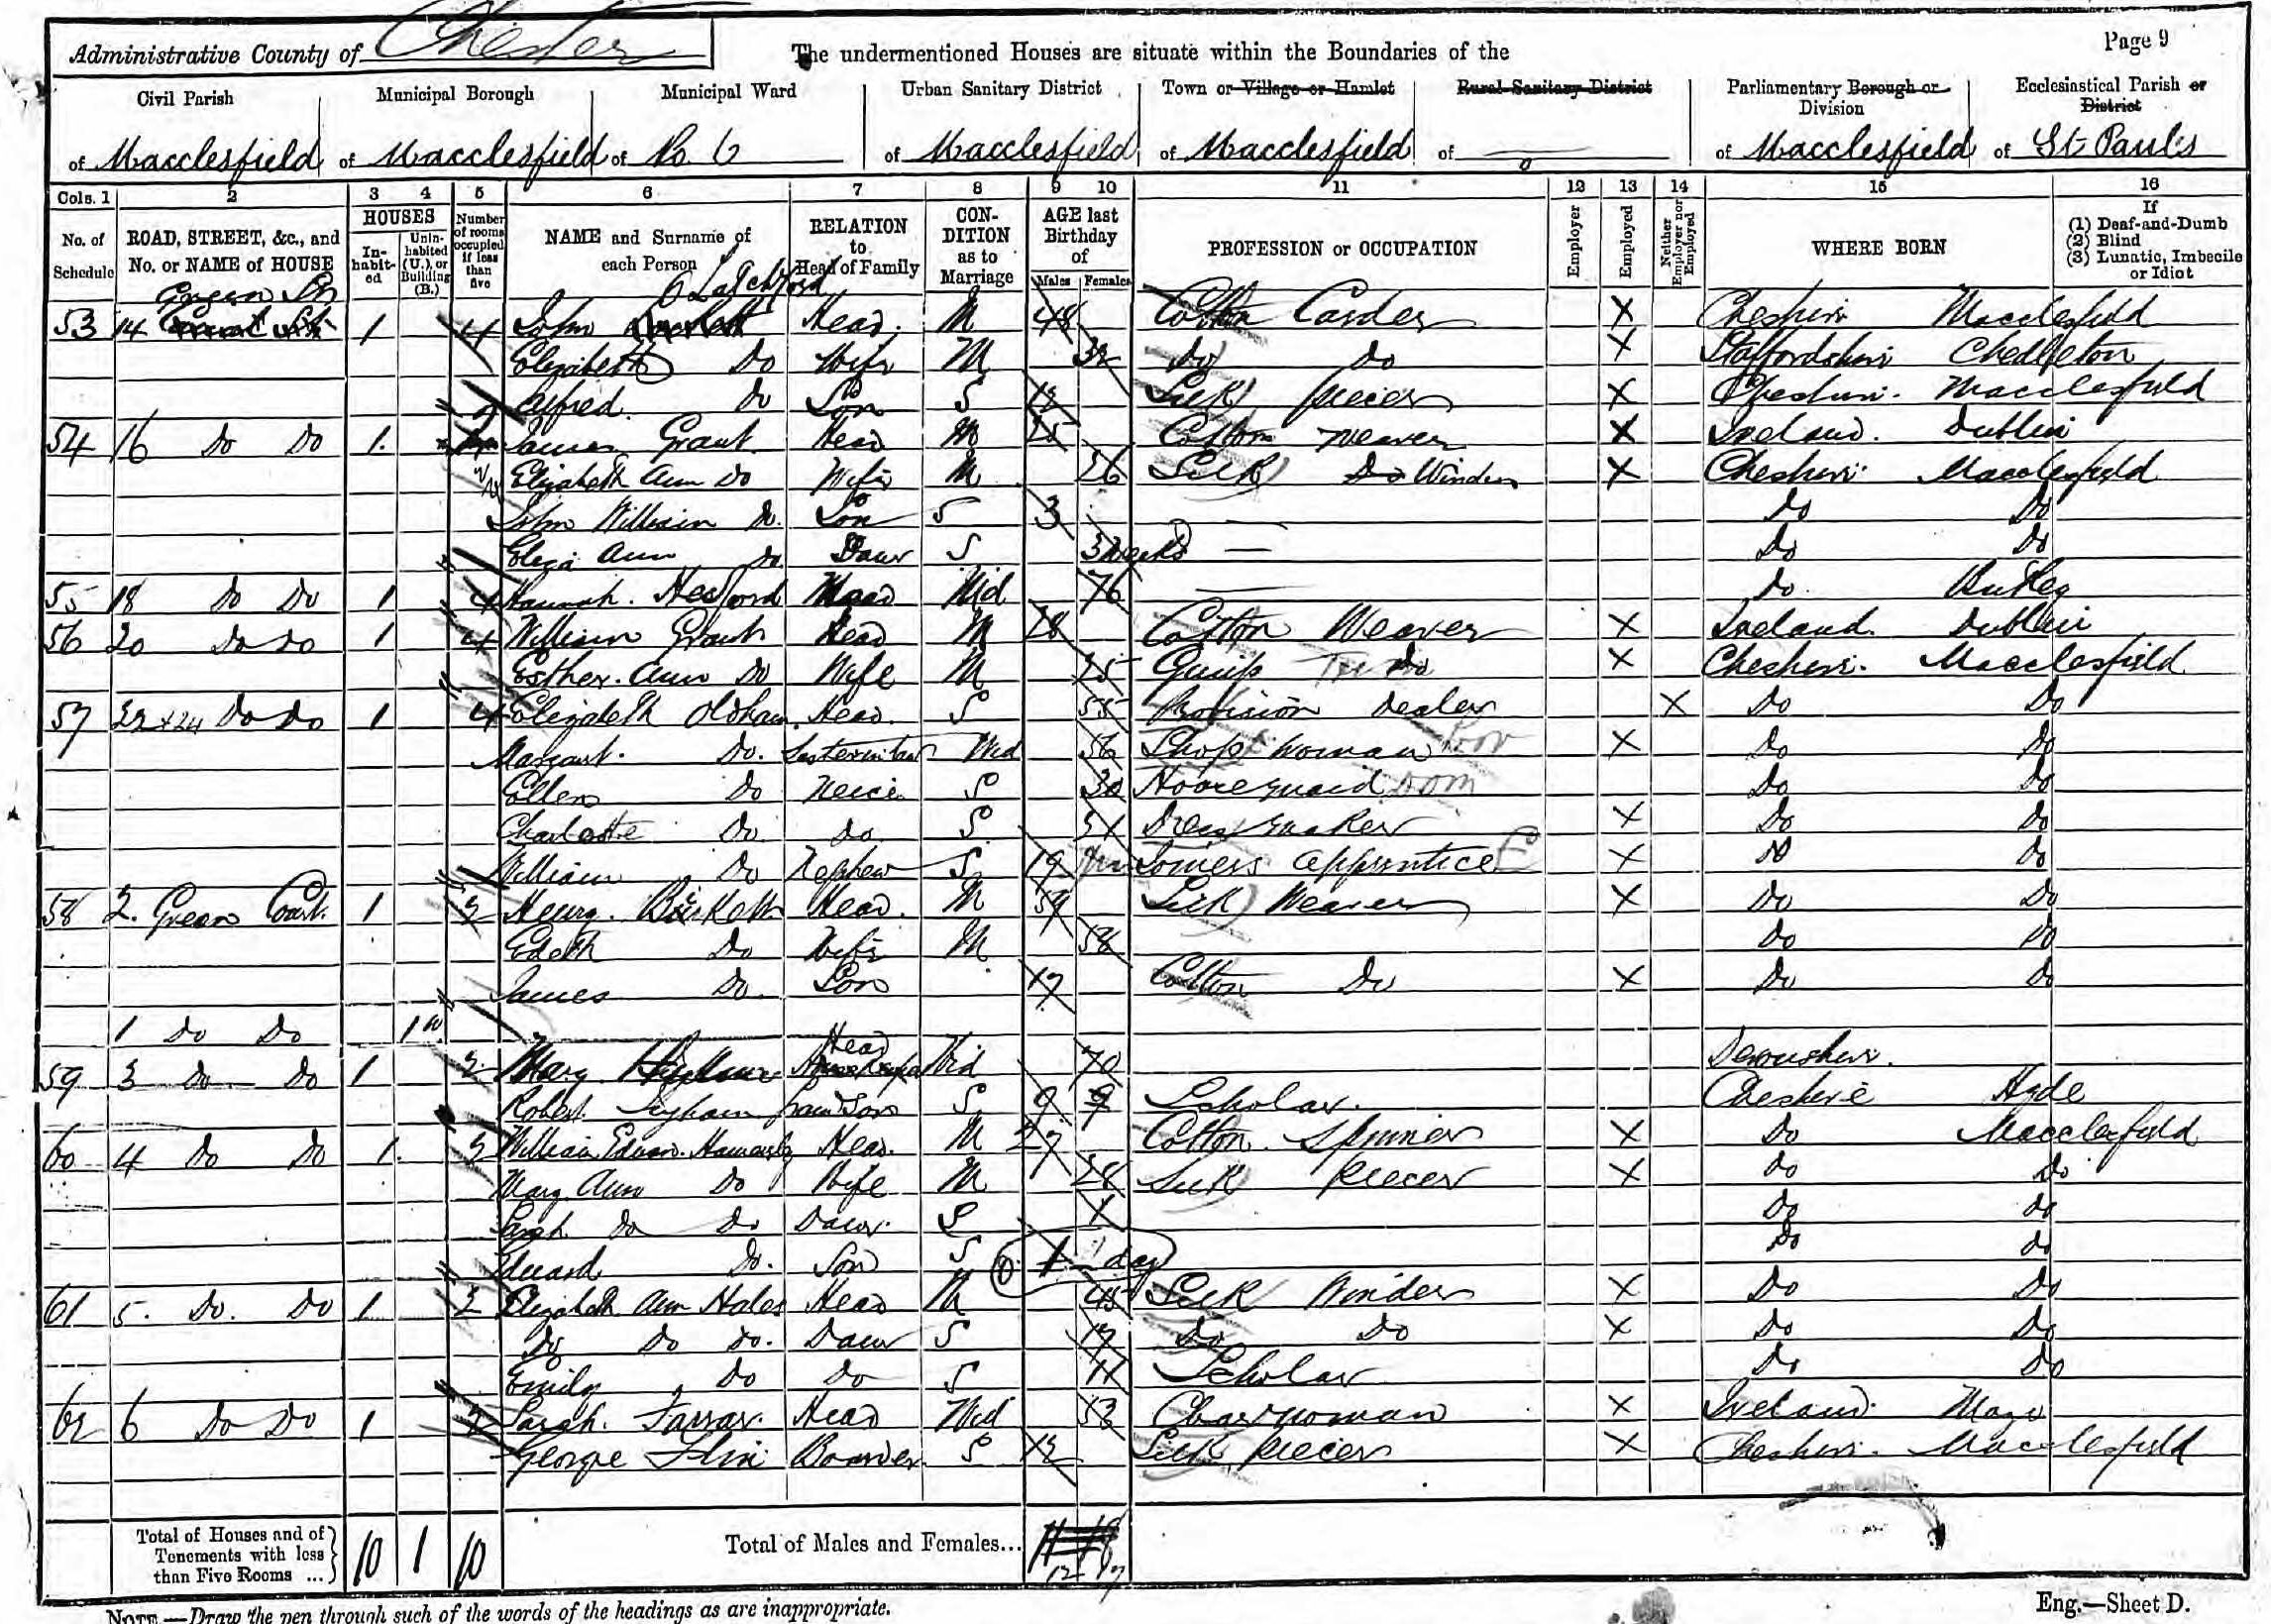 Administrative County of Chester
The undermentioned Houses are situate within the Boundaries of the
Page 9
Civil Parish
Municipal Borough
Municipal Ward
Urban Sanitary District
Town or Village or Hamlet
Rural Sanitary District
Parliamentary Borough or Division
Ecclesiastical Parish or District
of Macclesfield
of Macclesfield
of No. 6
of Macclesfield
of Macclesfield
of
of Macclesfield
of St Pauls
Cols. 1 2 3 4 5 6 7 8 9 10 11 12 13 14 15 16
No. of Schedule
ROAD, STREET, &c., and No. or NAME of HOUSE
HOUSES
Inhabited
Uninhabited (U.), or Building (B.)
Number of rooms occupied if less than five
NAME and Surname of each Person
RELATION to Head of Family
CONDITION as to Marriage
AGE last Birthday of
Males Females
PROFESSION or OCCUPATION
Employer
Employed
Neither Employer nor Employed
WHERE BORN
If
(1) Deaf-and-Dumb
(2) Blind
(3) Lunatic, Imbecile or Idiot
Green St
Latchford
53 14 1 4 John Head M 48 Cotton Carder X Cheshire Macclesfield
Elizabeth Do Wife M 32 Do Do X Staffordshire Chedleton
Alfred Do Son S 13 Silk piecer X Cheshire Macclesfield
54 16 Do Do 1 James Grant Head M 25 Cotton Weaver X Ireland Dublin
Elizabeth Ann Do Wife M 26 Silk Do Winder X Cheshire Macclesfield
John William Do Son S 3 — Do Do
Eliza Ann Do Daur S 3 weeks — Do Do
55 18 Do Do 1 4 Hannah Hesford Head Wid 76 — Do Butley
56 20 Do Do 1 4 William Grant Head M 28 Cotton Weaver X Ireland Dublin
Esther Ann Do Wife M 25 Do X Cheshire Macclesfield
57 22 + 24 Do Do 1 4 Elizabeth Oldham Head S 55 Provision Dealer X Do Do
Margaret Do Sister in law Wid 56 Shop woman X Do Do
Ellen Do Neice S 30 Housemaid Dom Do Do
Charlotte Do Do S 21 Dress Maker X Do Do
William Do Nephew S 19 Joiners Apprentice X Do Do
58 2 Green Court 1 3 Henry Birkett Head M 59 Silk Weaver X Do Do
Edith Do Wife M 58 Do Do
James Do Son 17 Cotton Do X Do Do
1 Do Do 1 u
59 3 Do Do 1 2 Mary Head Wid 70 Devonshire
Robert Ingham Grandson S 9 9 Scholar Cheshire Hyde
60 4 Do Do 1 3 William Edward Head M 27 Cotton Spinner X Do Macclesfield
Mary Ann Do Wife M 28 Silk Piecer X Do Do
Sarah Do Do Daur S 1 Do Do
Edward Do Son S 1 day Do Do
61 5 Do Do 1 2 Elizabeth Ann Hales Head M 45 Silk Winder X Do Do
Do Do Do Daur S 19 Do Do X Do Do
Emily Do Do S 11 Scholar Do Do
62 6 Do Do 1 2 Sarah Farrar Head Wid 53 Charwoman X Ireland Mayo
George Boarder S 13 Silk Piecer X Cheshire Macclesfield
Total of Houses and of Tenements with less than Five Rooms ... 10 1 10
Total of Males and Females... 12 17
NOTE.—Draw the pen through such of the words of the headings as are inappropriate.
Eng.—Sheet D.